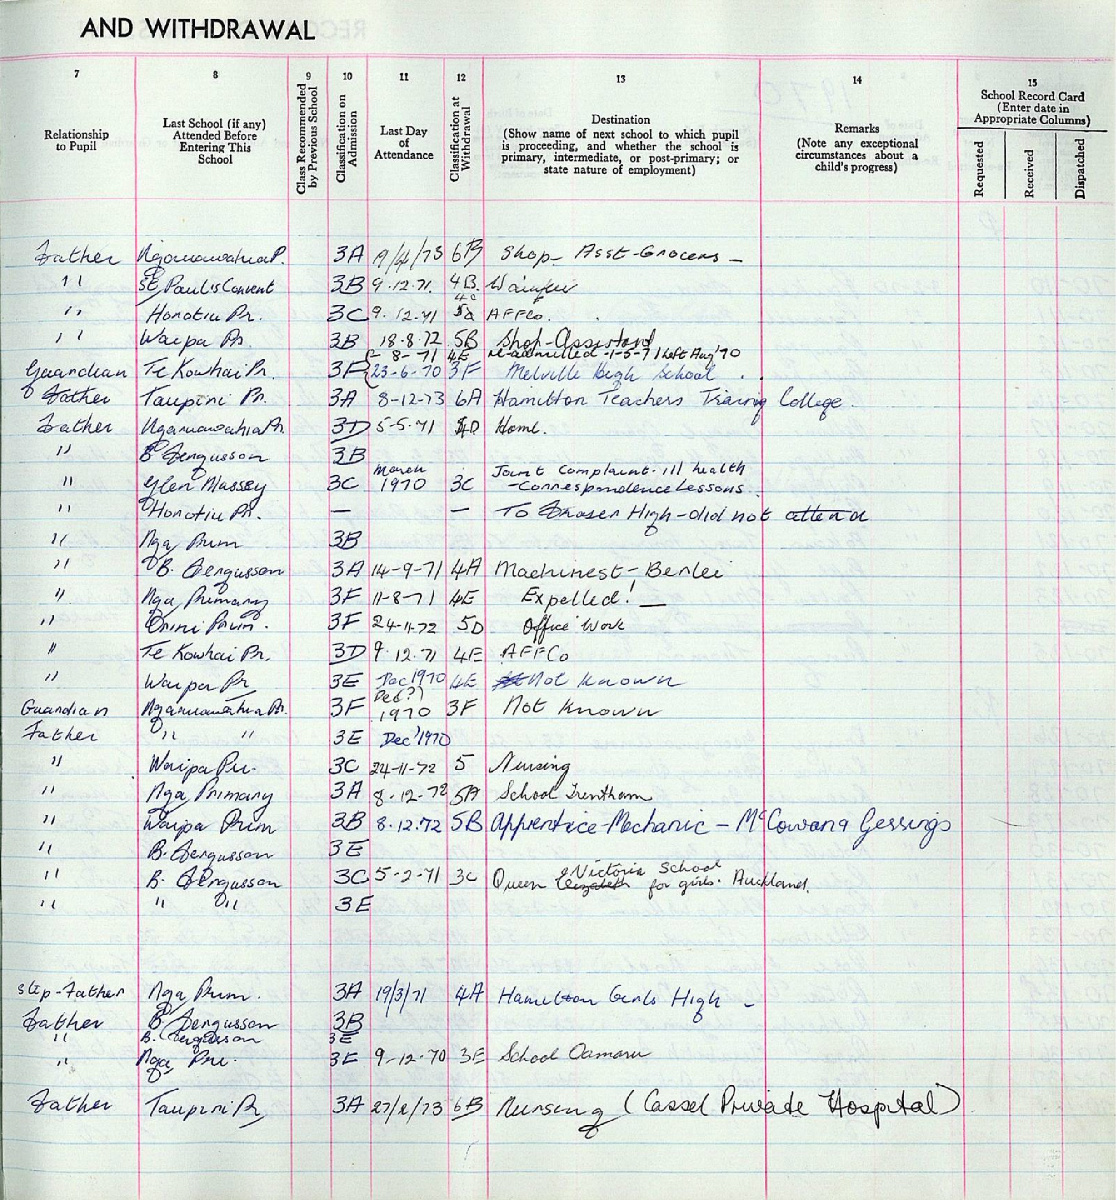 AND WITHDRAWAL
7 8 9 10 11 12 13 14 15
Relationship to Pupil
Last School (if any) Attended Before Entering This School
Class Recommended by Previous School
Classification on Admission
Last Day of Attendance
Classification at Withdrawal
Destination
(Show name of next school to which pupil is proceeding, and whether the school is primary, intermediate, or post-primary; or state nature of employment)
Remarks
(Note any exceptional circumstances about a child's progress)
School Record Card
(Enter date in Appropriate Columns)
Requested Received Dispatched
Father Ngaruawahia P. 3A /73 6B Shop Asst-Grocers -
" St Paul's Convent 3B 9.12.71. 4B.
" Horotiu Pr. 3C 9.12.71 AFFCo.
" Waipa Pr. 3B 18.8.72 5B Shop-Assistant
8-71 4E re-admitted -1-5-71 left Aug '70
Guardian Te Kowhai Pr. 3F 23-6-70 3F Melville High School
Father Taupiri Pr. 3A 8-12-73 6A Hamilton Teachers Traing College.
Father Ngaruawahia Pr 3D 5-5-71 4D Home.
" B Fergusson 3B
" Glen Massey 3C March 1970 3C Joint Complaint. ill health
-Correspondence Lessons.
" Horotiu Pr. — — To Fraser High-did not attend
" Nga Prim 3B
" B. Fergusson 3A 14-9-71 4A Machinest-Berlei
" Nga Primary 3F 11-8-71 4E Expelled! —
" Orini Prim. 3F 24-11-72 5D Office Work
" Te Kowhai Pr. 3D 9.12.71 4E AFFCo
" Waipa Pr 3E Dec 1970 4E Not Known
Guardian Ngaruawahia Pr. 3F Dec(?) 1970 3F Not Known
Father " " 3E Dec' 1970
" Waipa Pr. 3C 24-11-72 5 Nursing
" Nga Primary 3A 8-12-72 5A School Trentham
" Waipa Prim 3B 8.12.72 5B Apprentice Mechanic - McCowans Gessings
" B. Fergusson 3E
" B. Fergusson 3C 5-2-71 3C Queen Elizabeth Victoria School for girls. Auckland.
" " " 3E
Step-Father Nga Prim. 3A 19/3/71 4A Hamilton Girls High -
Father B Fergusson 3B
" B. Fergusson 3E
" Nga Pri. 3F 9-12-70 3E School Oamaru
Father Taupiri Pr 3A /73 6B Nursing (Cassel Private Hospital)